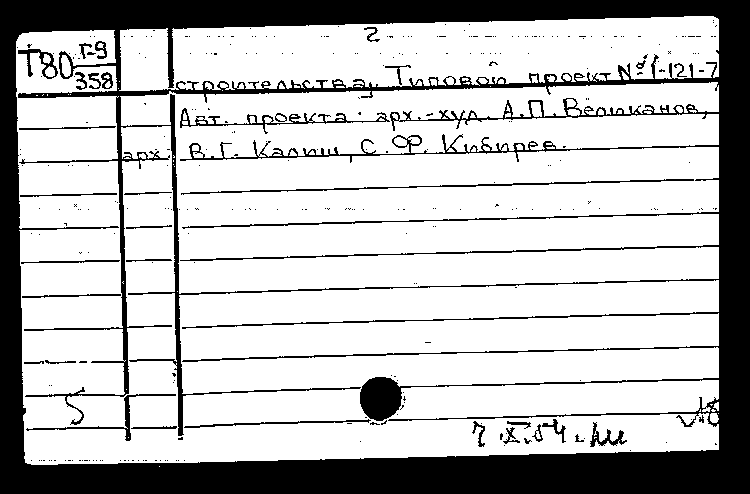 2
Т80 Г-9
358
строительства, Типовой проект № 1-121-7
Авт. проекта: арх.-худ. А.П. Великанов,
арх. В.Г. Калиш, С.Ф. Кибирев.
5
7.X.54.